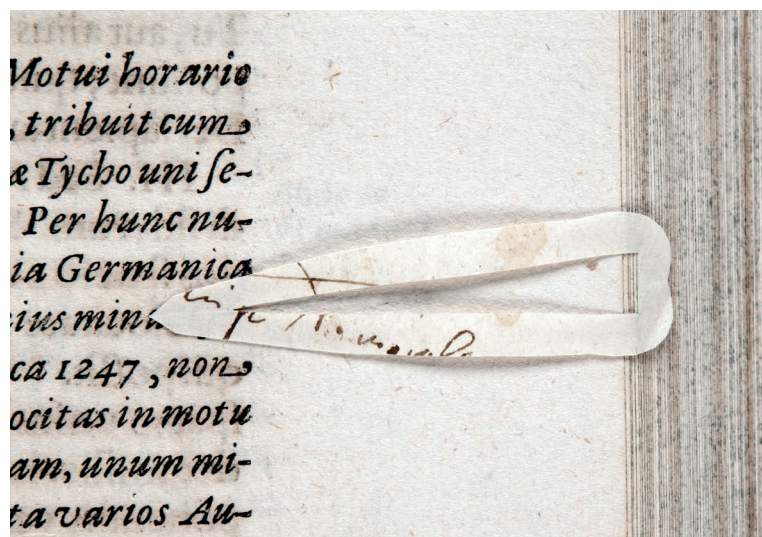 Motui horario
, tribuit cum
æ Tycho uni ſe-
Per hunc nu-
ia Germanica
ius minu
ca 1247, non
ocitas in motu
am, unum mi-
ta varios Au-